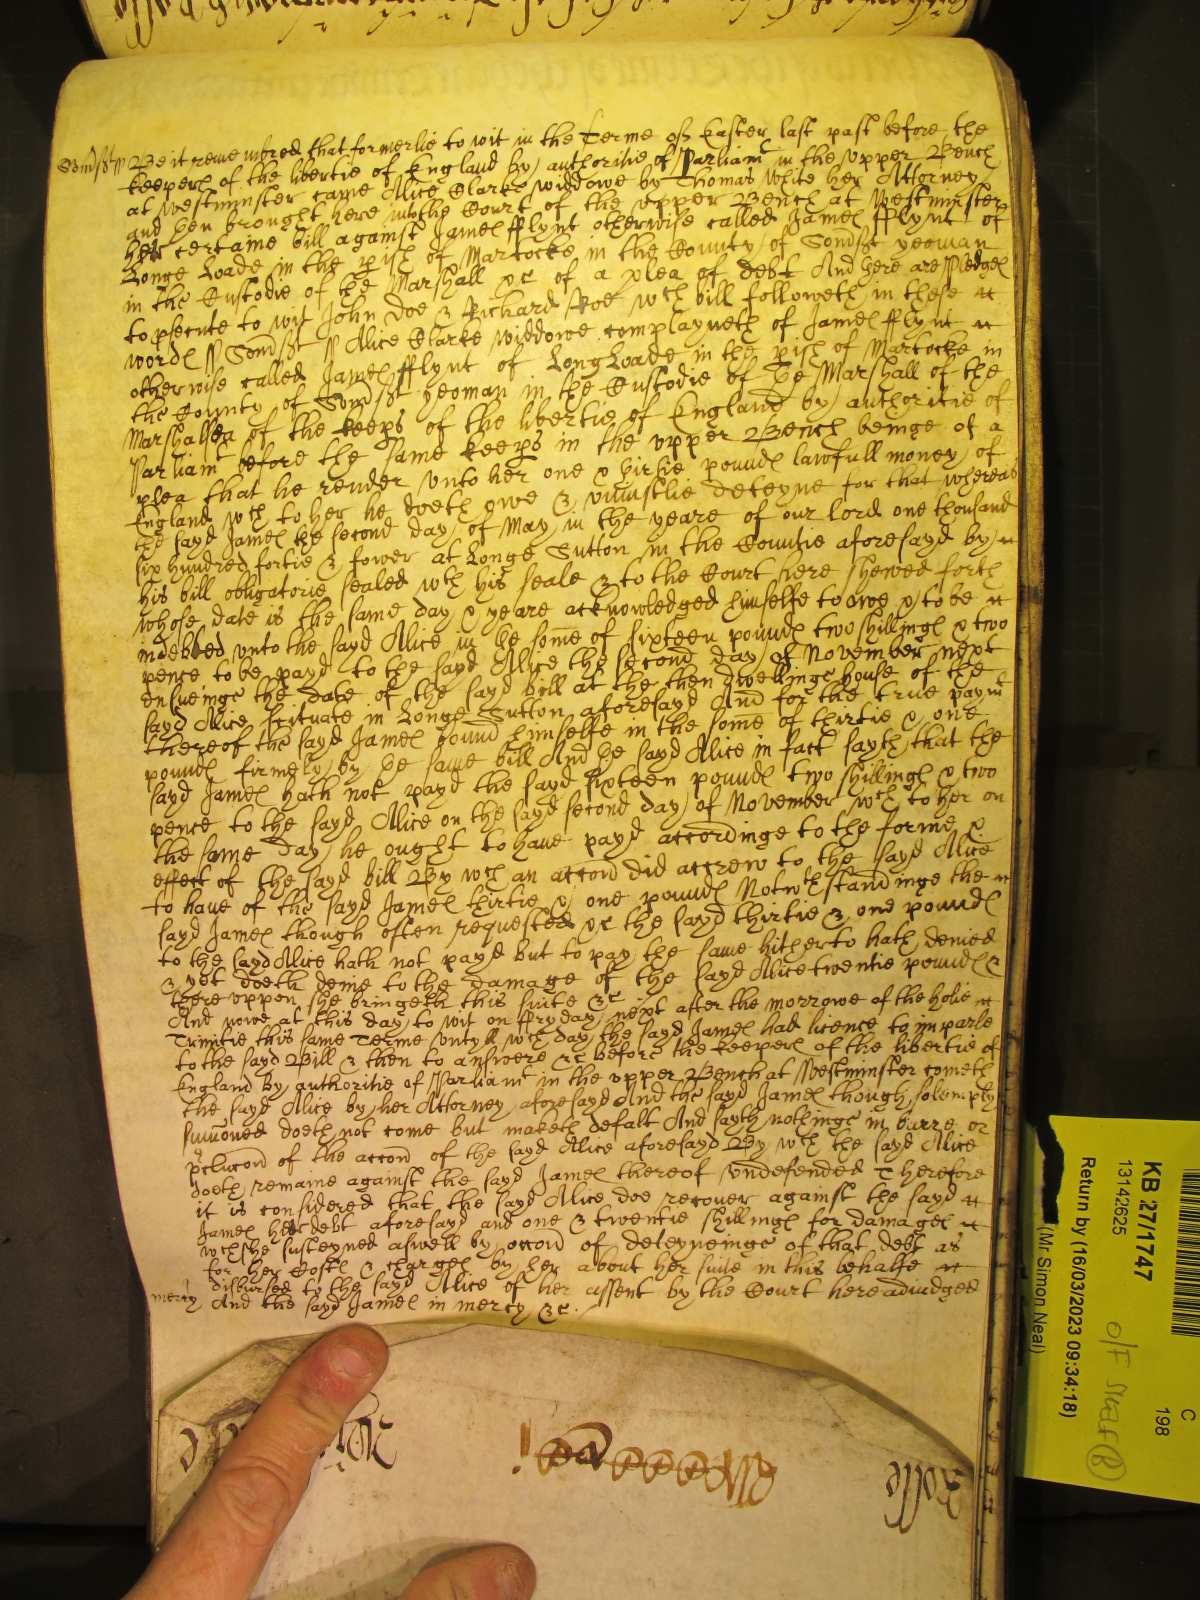 Somst ss Be it remembred that formerlie to wit in the Terme of Easter last past before the
keepers of the libertie of England by authoritie of Parliamt in the upper Bench
at Westminster came Alice Clarke widdowe by Thomas White her Attorney
and then brought here into the Court of the upper Bench at Westminster
her certaine bill against James fflynt otherwise called James fflynt of
Longe Loade in the pish of Martocke in the County of Somst yeoman
in the Custodie of the Marshall &c of a plea of debt And here are Pledges
to psecute to wit John Doe & Richard Roe wch bill followeth in these
words ss Somst ss Alice Clarke widdowe complayneth of James fflynt
otherwise called James fflynt of Long Loade in the pish of Martocke in
the County of Somst yeoman in the Custodie of the Marshall of the
Marshalsea of the keeps of the libertie of England by authoritie of
Parliamt before the same keeps in the upper Bench beinge of a
plea that he render unto her one & thirtie pounds lawfull money of
England wch to her he doeth owe & uniustlie deteyne for that whereas
the sayd James the second day of May in the yeare of our lord one thousand
six hundred fortie & fower at Longe Sutton in the Countie aforesayd by
his bill obligatorie sealed wth his seale & to the Court here shewed forth
whose date is the same day & yeare acknowledged himselfe to owe & to be
indebted unto the sayd Alice in the some of sixteen pounds two shillings & two
pence to be payd to the sayd Alice the second day of November next
ensueinge the date of the sayd bill at the then dwellinge house of the
sayd Alice scituate in Longe Sutton aforesayd And for the true paymt
thereof the sayd James bound himselfe in the some of thirtie & one
pounds firmely by the same bill And the sayd Alice in fact sayth that the
sayd James hath not payd the sayd sixteen pounds two shillings & two
pence to the sayd Alice on the sayd second day of November wch to her on
the same day he ought to have payd accordinge to the forme &
effect of the sayd bill By wch an accon did accrew to the sayd Alice
to have of the sayd James thirtie & one pounds Notwthstandinge the
sayd James though often requested &c the sayd thirtie & one pounds
to the sayd Alice hath not payd but to pay the same hitherto hath denied
& yet doeth denie to the damage of the sayd Alice twentie pounds &
thereuppon she bringeth this suite &c
And nowe at this day to wit on ffryday next after the morrowe of the holie
Trinitie this same Terme untyll wch day the sayd James had licence to imparle
to the sayd Bill & then to answere &c before the keepers of the libertie of
England by authoritie of Parliamt in the upper Bench at Westminster cometh
the sayd Alice by her Attorney aforesayd And the sayd James though solemply
sumoned doeth not come but maketh defalt And sayth nothinge in barre or
pclucon of the accon of the sayd Alice aforesayd By wch the sayd Alice
doeth remaine against the sayd James thereof undefended Therefore
it is considered that the sayd Alice doe recover against the sayd
James her debt aforesayd and one & twentie shillings for damages
wch she susteyned aswell by occon of deteyneinge of that debt as
for her Costs & charges by her about her suite in this behalfe
disbursed to the sayd Alice of her assent by the Court here adiudged
mercy And the sayd James in mercy &c.
Rolle
KB 27/1747
13142625
Return by (16/03/2023 09:34:18)
(Mr Simon Neal)
C
198
O/F Shelf (R)